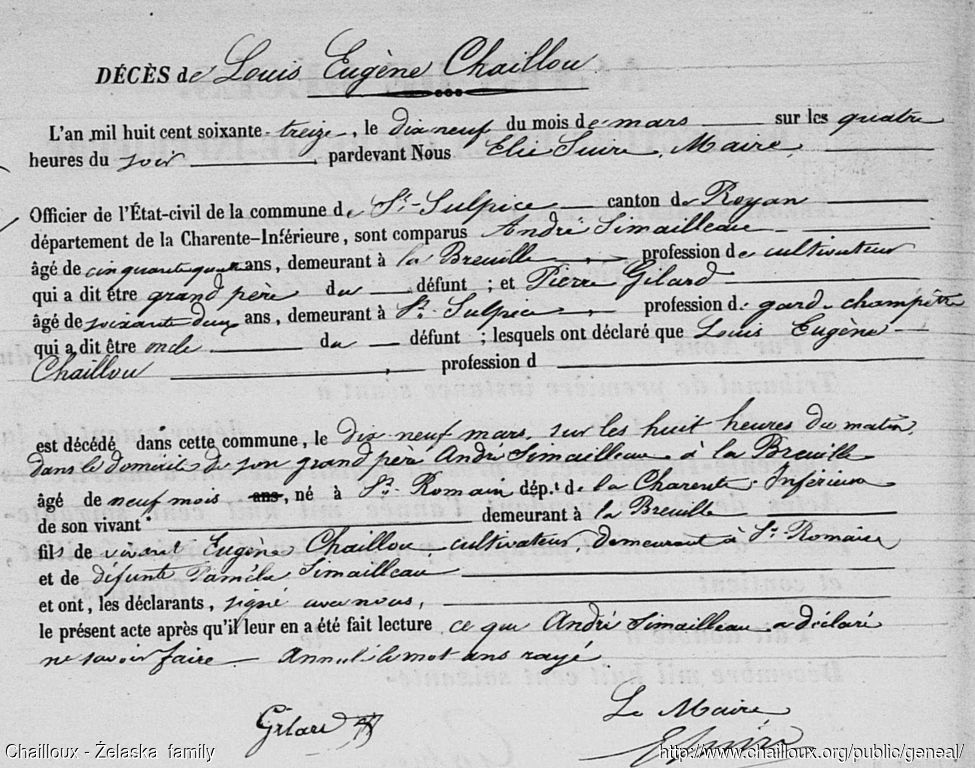 DÉCÈS de Louis Eugène Chaillou
L'an mil huit cent soixante-treize, le dix neuf du mois de mars sur les quatre
heures du soir, pardevant Nous Elie Suire, Maire,
Officier de l'État-civil de la commune de St-Sulpice canton de Royan
département de la Charente-Inférieure, sont comparus André Simailleau
âgé de cinquante quatre ans, demeurant à la Breuille, profession de cultivateur
qui a dit être grand père du défunt ; et Pierre Gilard
âgé de soixante deux ans, demeurant à St-Sulpice, profession d. garde champêtre
qui a dit être oncle du défunt ; lesquels ont déclaré que Louis Eugène
Chaillou, profession d
est décédé dans cette commune, le dix neuf mars, sur les huit heures du matin
dans le domicile de son grand père André Simailleau à la Breuille
âgé de neuf mois ans, né à St. Romain dép.t de la Charente-Inférieure
de son vivant demeurant à la Breuille
fils de vivant Eugène Chaillou, cultivateur demeurant à St Romain
et de défunte Paméla Simailleau
et ont, les déclarants, signé avec nous,
le présent acte après qu'il leur en a été fait lecture ce que André Simailleau a déclaré
ne savoir faire - Annulé le mot ans rayé
Le Maire
Gilard
Chailloux - Želaska family
http://www.chailloux.org/public/geneal/